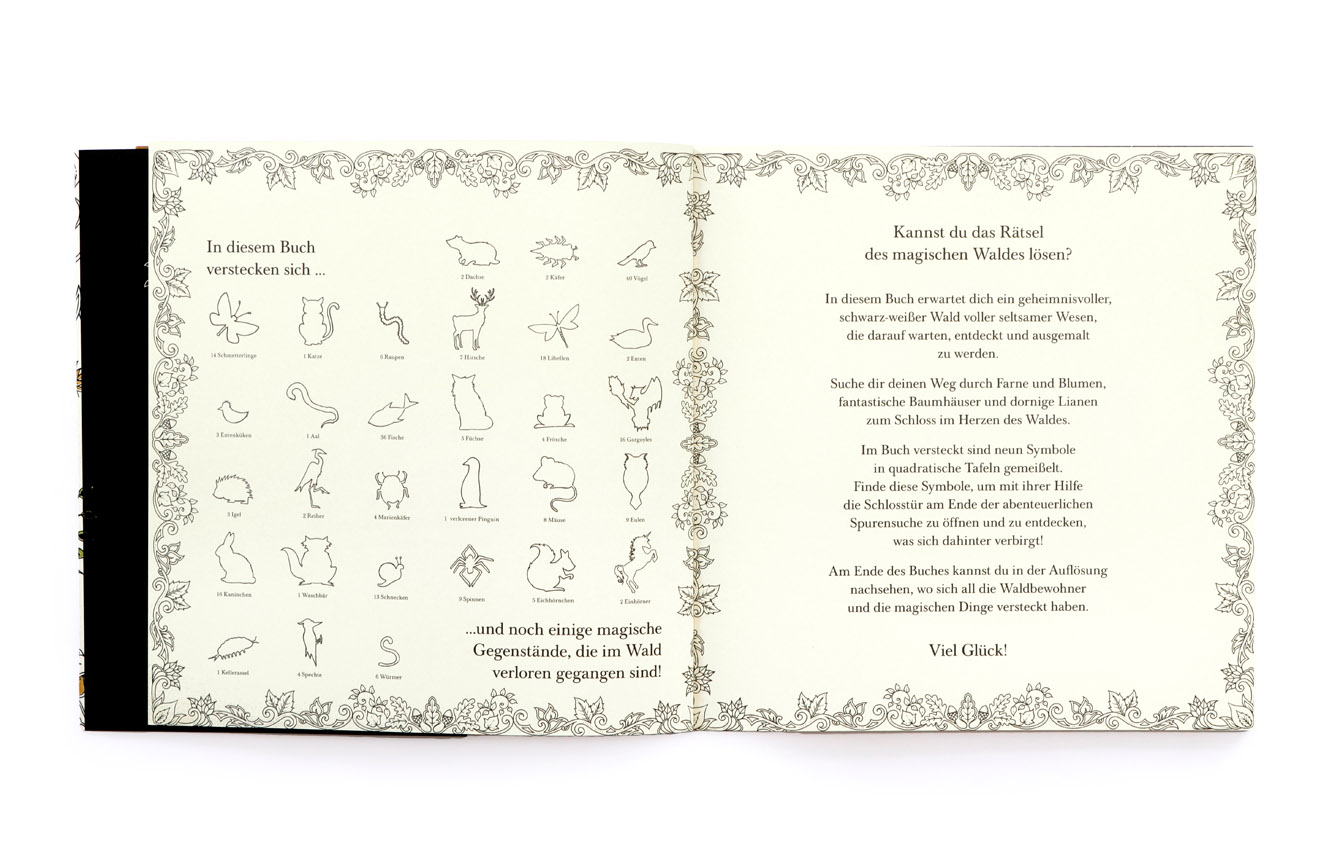 In diesem Buch
verstecken sich ...
2 Dachse
2 Käfer
40 Vögel
14 Schmetterlinge
1 Katze
6 Raupen
7 Hirsche
18 Libellen
2 Enten
3 Entenküken
1 Aal
36 Fische
5 Füchse
4 Frösche
16 Gargoyles
3 Igel
2 Reiher
4 Marienkäfer
1 verlorener Pinguin
8 Mäuse
9 Eulen
16 Kaninchen
1 Waschbär
13 Schnecken
9 Spinnen
5 Eichhörnchen
2 Einhörner
1 Kellerassel
4 Spechte
6 Würmer
...und noch einige magische
Gegenstände, die im Wald
verloren gegangen sind!
Kannst du das Rätsel
des magischen Waldes lösen?
In diesem Buch erwartet dich ein geheimnisvoller,
schwarz-weißer Wald voller seltsamer Wesen,
die darauf warten, entdeckt und ausgemalt
zu werden.
Suche dir deinen Weg durch Farne und Blumen,
fantastische Baumhäuser und dornige Lianen
zum Schloss im Herzen des Waldes.
Im Buch versteckt sind neun Symbole
in quadratische Tafeln gemeißelt.
Finde diese Symbole, um mit ihrer Hilfe
die Schlosstür am Ende der abenteuerlichen
Spurensuche zu öffnen und zu entdecken,
was sich dahinter verbirgt!
Am Ende des Buches kannst du in der Auflösung
nachsehen, wo sich all die Waldbewohner
und die magischen Dinge versteckt haben.
Viel Glück!